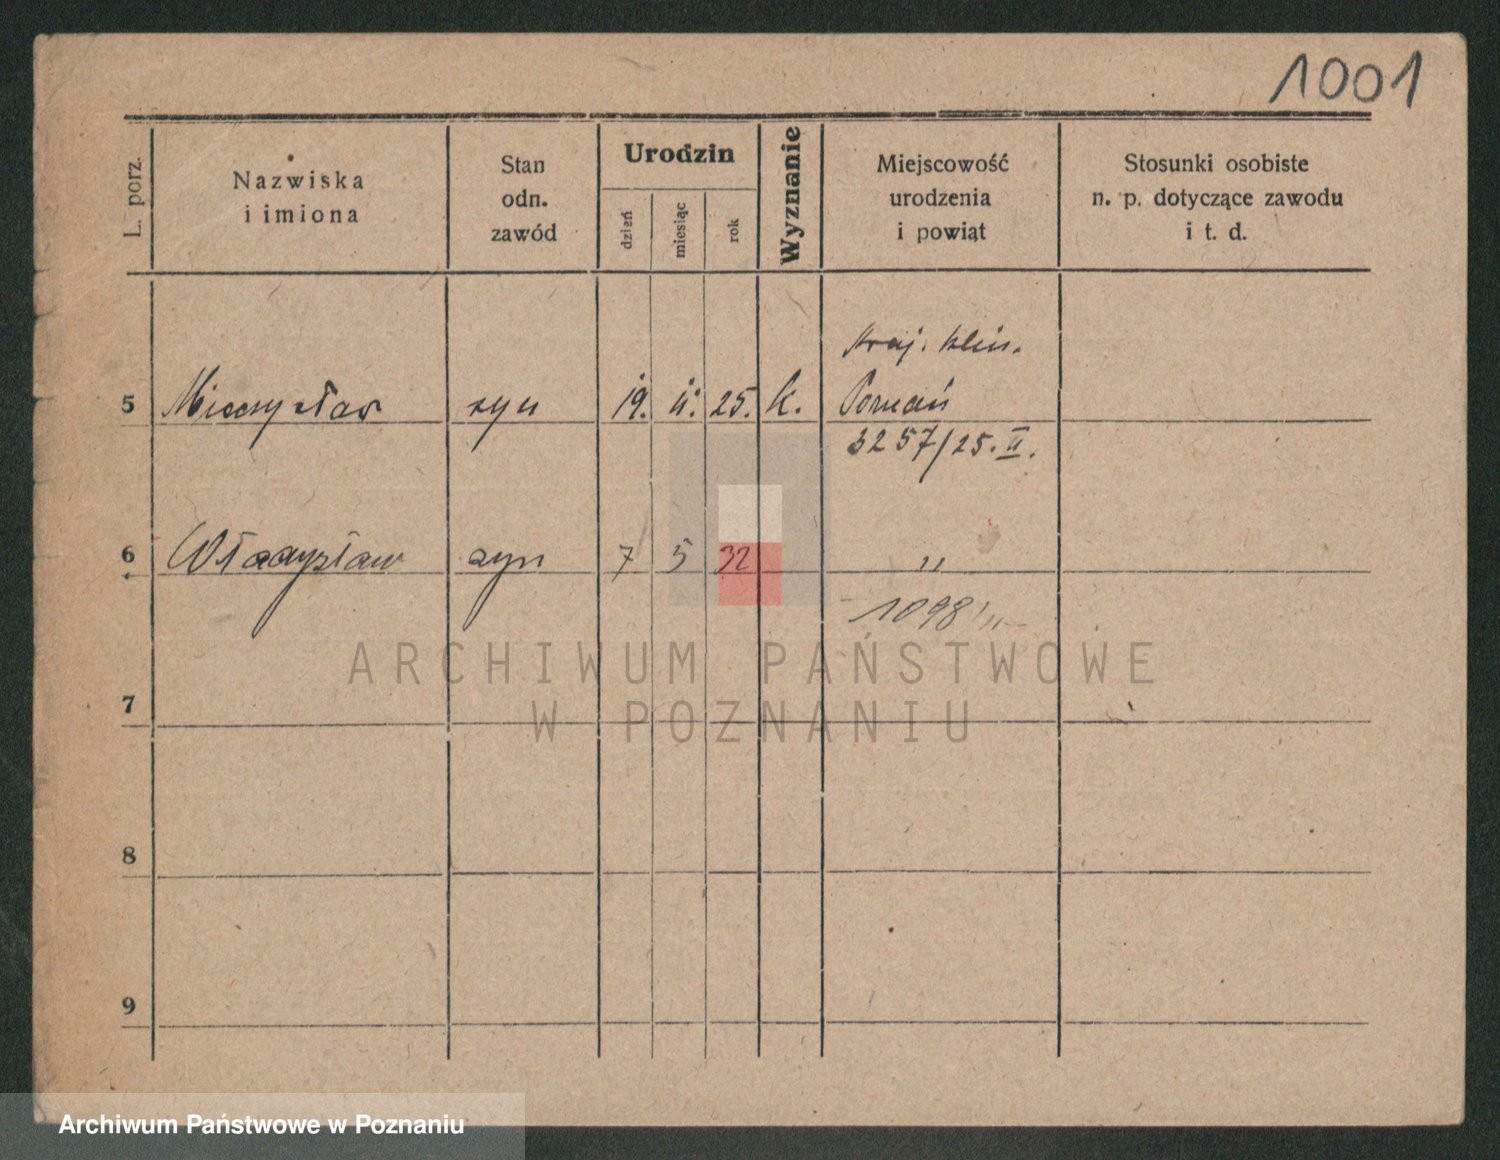 1001
L. porz.
Nazwiska
i imiona
Stan
odn.
zawód
Urodzin
dzień
miesiąc
rok
Wyznanie
Miejscowość
urodzenia
i powiąt
Stosunki osobiste
n. p. dotyczące zawodu
i t. d.
Kraj. klin.
5 Mieczysław syn 19. 11. 25. k. Poznań
3257/25. II.
6 Władysław syn 7 5 32 "
1098/II
ARCHIWUM PAŃSTWOWE
W POZNANIU
7
8
9
Archiwum Państwowe w Poznaniu